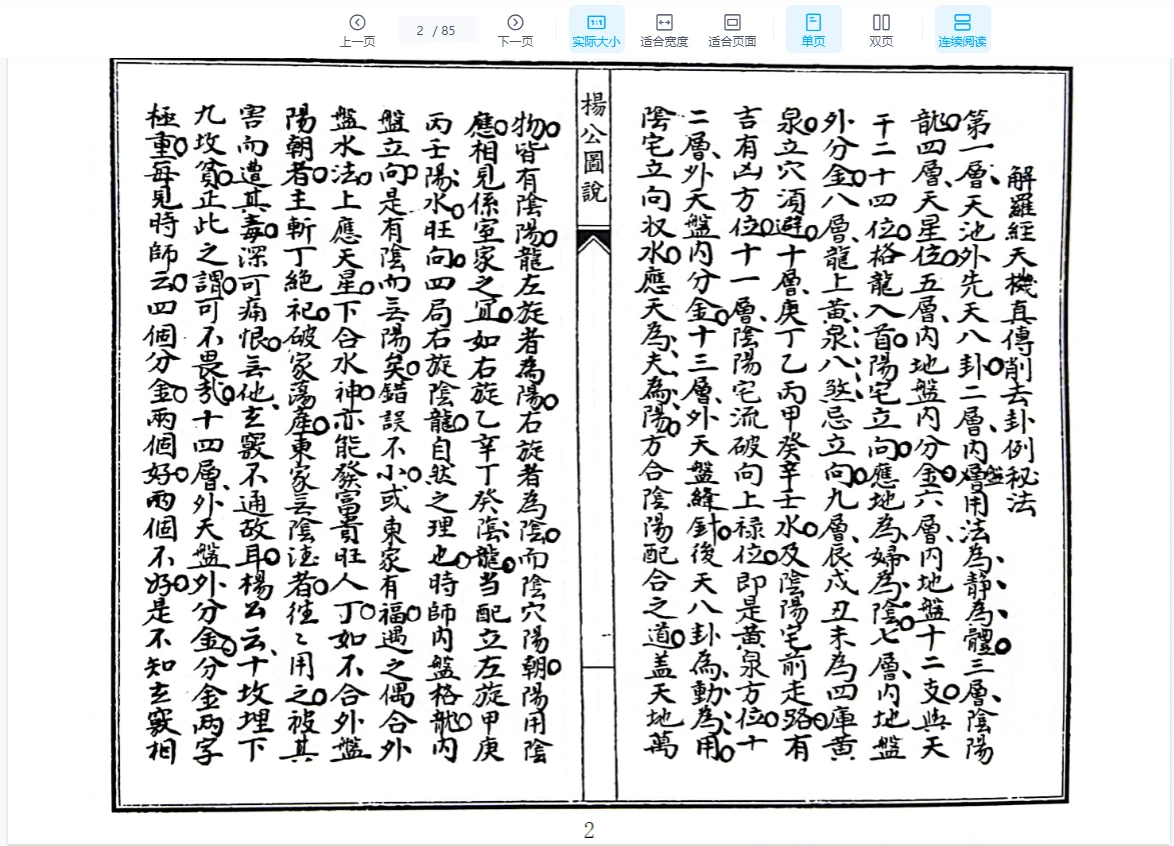 上一页
2 / 85
下一页
1:1
实际大小
适合宽度
适合页面
单页
双页
连续阅读
解羅經天機真傳削去卦例秘法
第一層天池外先天八卦二層內層盤用法為靜為體三層陰陽
龍四層天星位五層內地盤內分金六層內地盤十二支與天
干二十四位格龍入首陽宅立向應地為婦為陰七層內地盤
外分金八層龍上黃泉八煞忌立向九層辰戌丑未為四庫黃
泉立穴須避十層庚丁乙丙甲癸辛壬水及陰陽宅前走路有
吉有凶方位十一層陰陽宅流破向上祿位即是黃泉方位十
二層外天盤內分金十三層外天盤縫針後天八卦為動為用
陰宅立向収水應天為夫為陽方合陰陽配合之道蓋天地萬
楊公圖說
物皆有陰陽龍左旋者為陽右旋者為陰而陰穴陽朝陽用陰
應相見係室家之宜如右旋乙辛丁癸陰龍当配立左旋甲庚
丙壬陽水旺向四局右旋陰龍自然之理也時師內盤格龍內
盤立向是有陰而無陽矣錯誤不小或東家有福遇之偶合外
盤水法上應天星下合水神亦能發富貴旺人丁如不合外盤
陽朝者主斬丁絕祀破家蕩產東家無陰德者徃〻用之被其
害而遭其毒深可痛恨無他玄竅不通故耳楊公云十坟埋下
九坟貧正此之謂可不畏哉十四層外天盤外分金分金兩字
極重每見時師云四個分金兩個好兩個不好是不知玄竅相
2